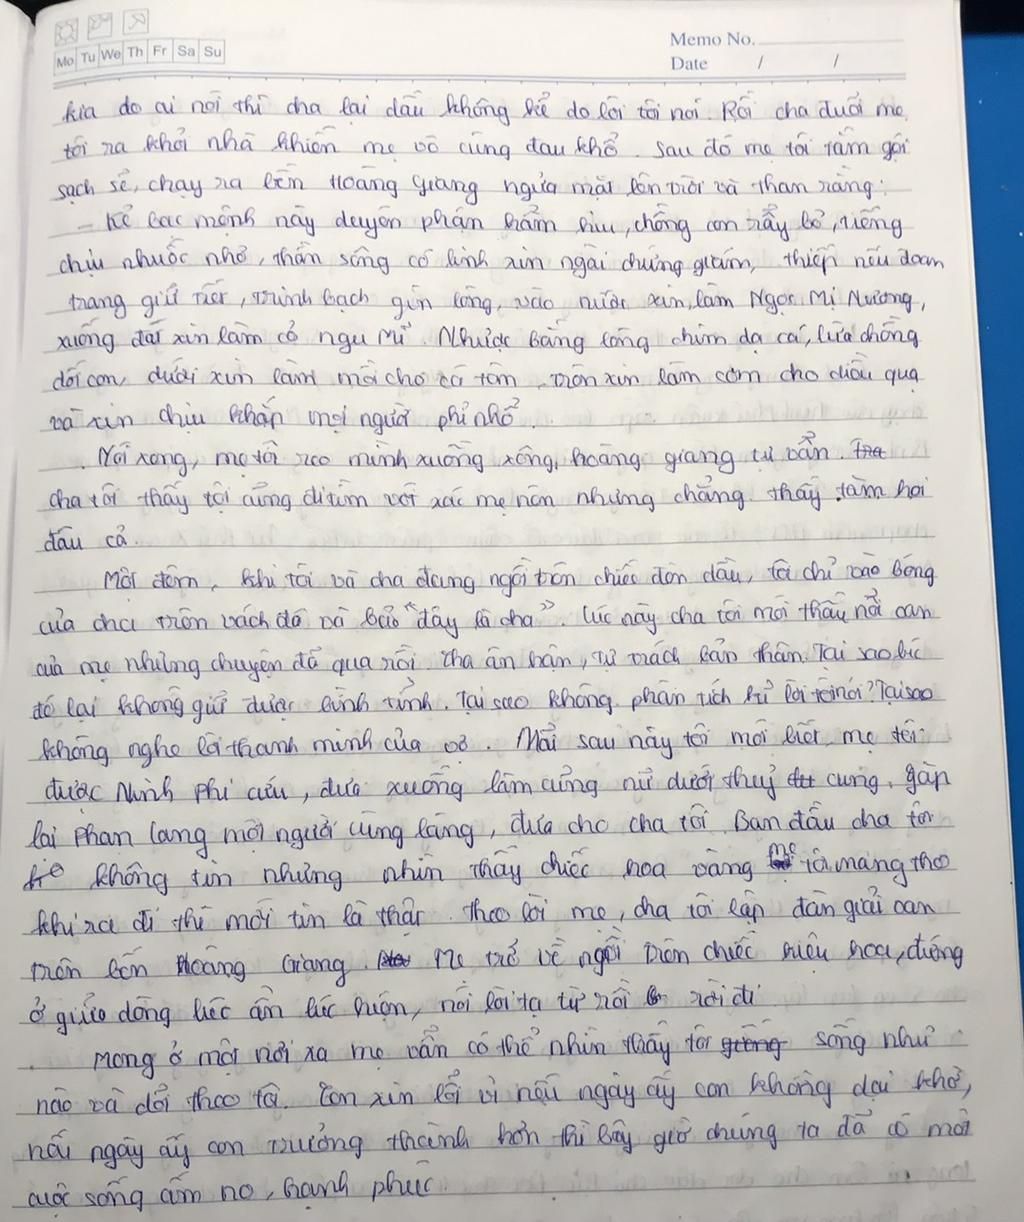 Mo Tu We Th Fr Sa Su
Memo No.
Date / /
kia do ai nói thì cha lại dấu không kể do lời tôi nói. Rồi cha đuổi mẹ
tôi ra khỏi nhà khiến mẹ vô cùng đau khổ. Sau đó mẹ tôi tắm gội
sạch sẽ, chạy ra bến Hoàng Giang ngửa mặt lên trời và than rằng:
- Kẻ bạc mệnh này duyên phận hẩm hiu, chồng con rẫy bỏ, tiếng
chịu nhuốc nhơ, thần sông có linh xin ngài chứng giám, thiếp nếu đoan
trang giữ tiết, trinh bạch gìn lòng, vào nước xin làm Ngọc Mị Nương,
xuống đất xin làm cỏ ngu Mĩ. Nhược bằng lòng chim dạ cá, lừa chồng
dối con, dưới xin làm mồi cho cá tôm, trên xin làm cơm cho diều quạ
và xin chịu khắp mọi người phỉ nhổ.
Nói xong, mẹ tôi reo mình xuống xông, hoàng giang tự vẫn.
cha tôi thấy tội cũng đi tìm vớt xác mẹ nên nhưng chẳng thấy tăm hơi
đâu cả.
Một đêm, khi tôi và cha đang ngồi bên chiếc đèn dầu, tôi chỉ vào bóng
của cha trên vách đó và bảo "đây là cha". Lúc này cha tôi mới thấu nỗi oan
của mẹ nhưng chuyện đã qua rồi. Cha ân hận, tự trách bản thân. Tại sao lúc
đó lại không giữ được bình tĩnh. Tại sao không phân tích kĩ lời tôi nói? Tại sao
không nghe lời thanh minh của vợ. Mãi sau này tôi mới biết mẹ tôi
được Ninh Phi cứu, đưa xuống làm cung nữ dưới thuỷ cung. gặp
lại Phan Lang một người cùng làng, đưa cho cha tôi. Ban đầu cha tôi
không tin nhưng nhìn thấy chiếc hoa vàng mẹ tôi mang theo
khi ra đi thì mới tin là thật. Theo lời mẹ, cha tôi lập đàn giải oan
trên bến Hoàng Giang. Mẹ trở về ngồi trên chiếc kiệu hoa, đứng
ở giữa dòng lúc ẩn lúc hiện, nói lời tạ từ rồi rời đi
Mong ở một nơi xa mẹ vẫn có thể nhìn thấy tôi sống như
nào và dõi theo tôi. Con xin lỗi vì nếu ngày ấy con không dại khờ,
nếu ngày ấy con trưởng thành hơn thì bây giờ chúng ta đã có một
cuộc sống ấm no, hạnh phúc.